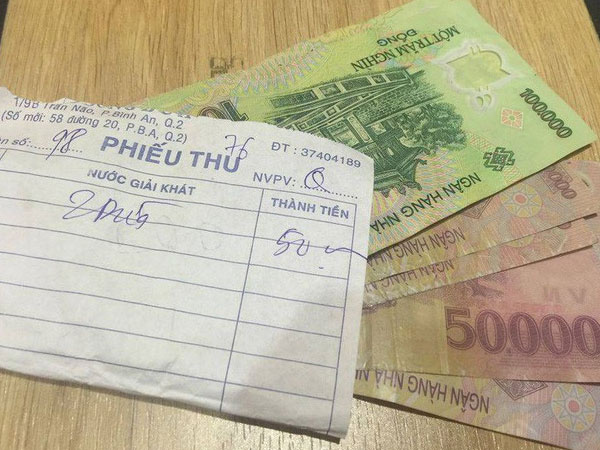 1/9B Trần Não, P.Bình An, Q.2
(Số mới: 58 đường 20, P.B.A, Q.2)
số: 98
PHIẾU THU
76
ĐT : 37404189
NVPV:
NƯỚC GIẢI KHÁT
THÀNH TIỀN
2 Dừa
50
MỘT TRĂM NGHÌN
ĐỒNG
100.000
NGÂN HÀNG NHÀ
NGÂN HÀNG
NGÂN HÀNG
50000
NGÂN HÀNG NHÀ